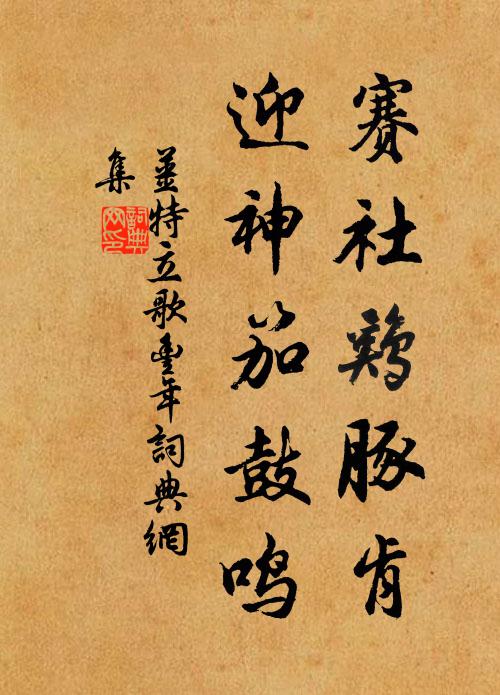 賽社鷄豚肯
迎神笳鼓鳴
薑特立歌豐年詞典網
集
詞典
网印